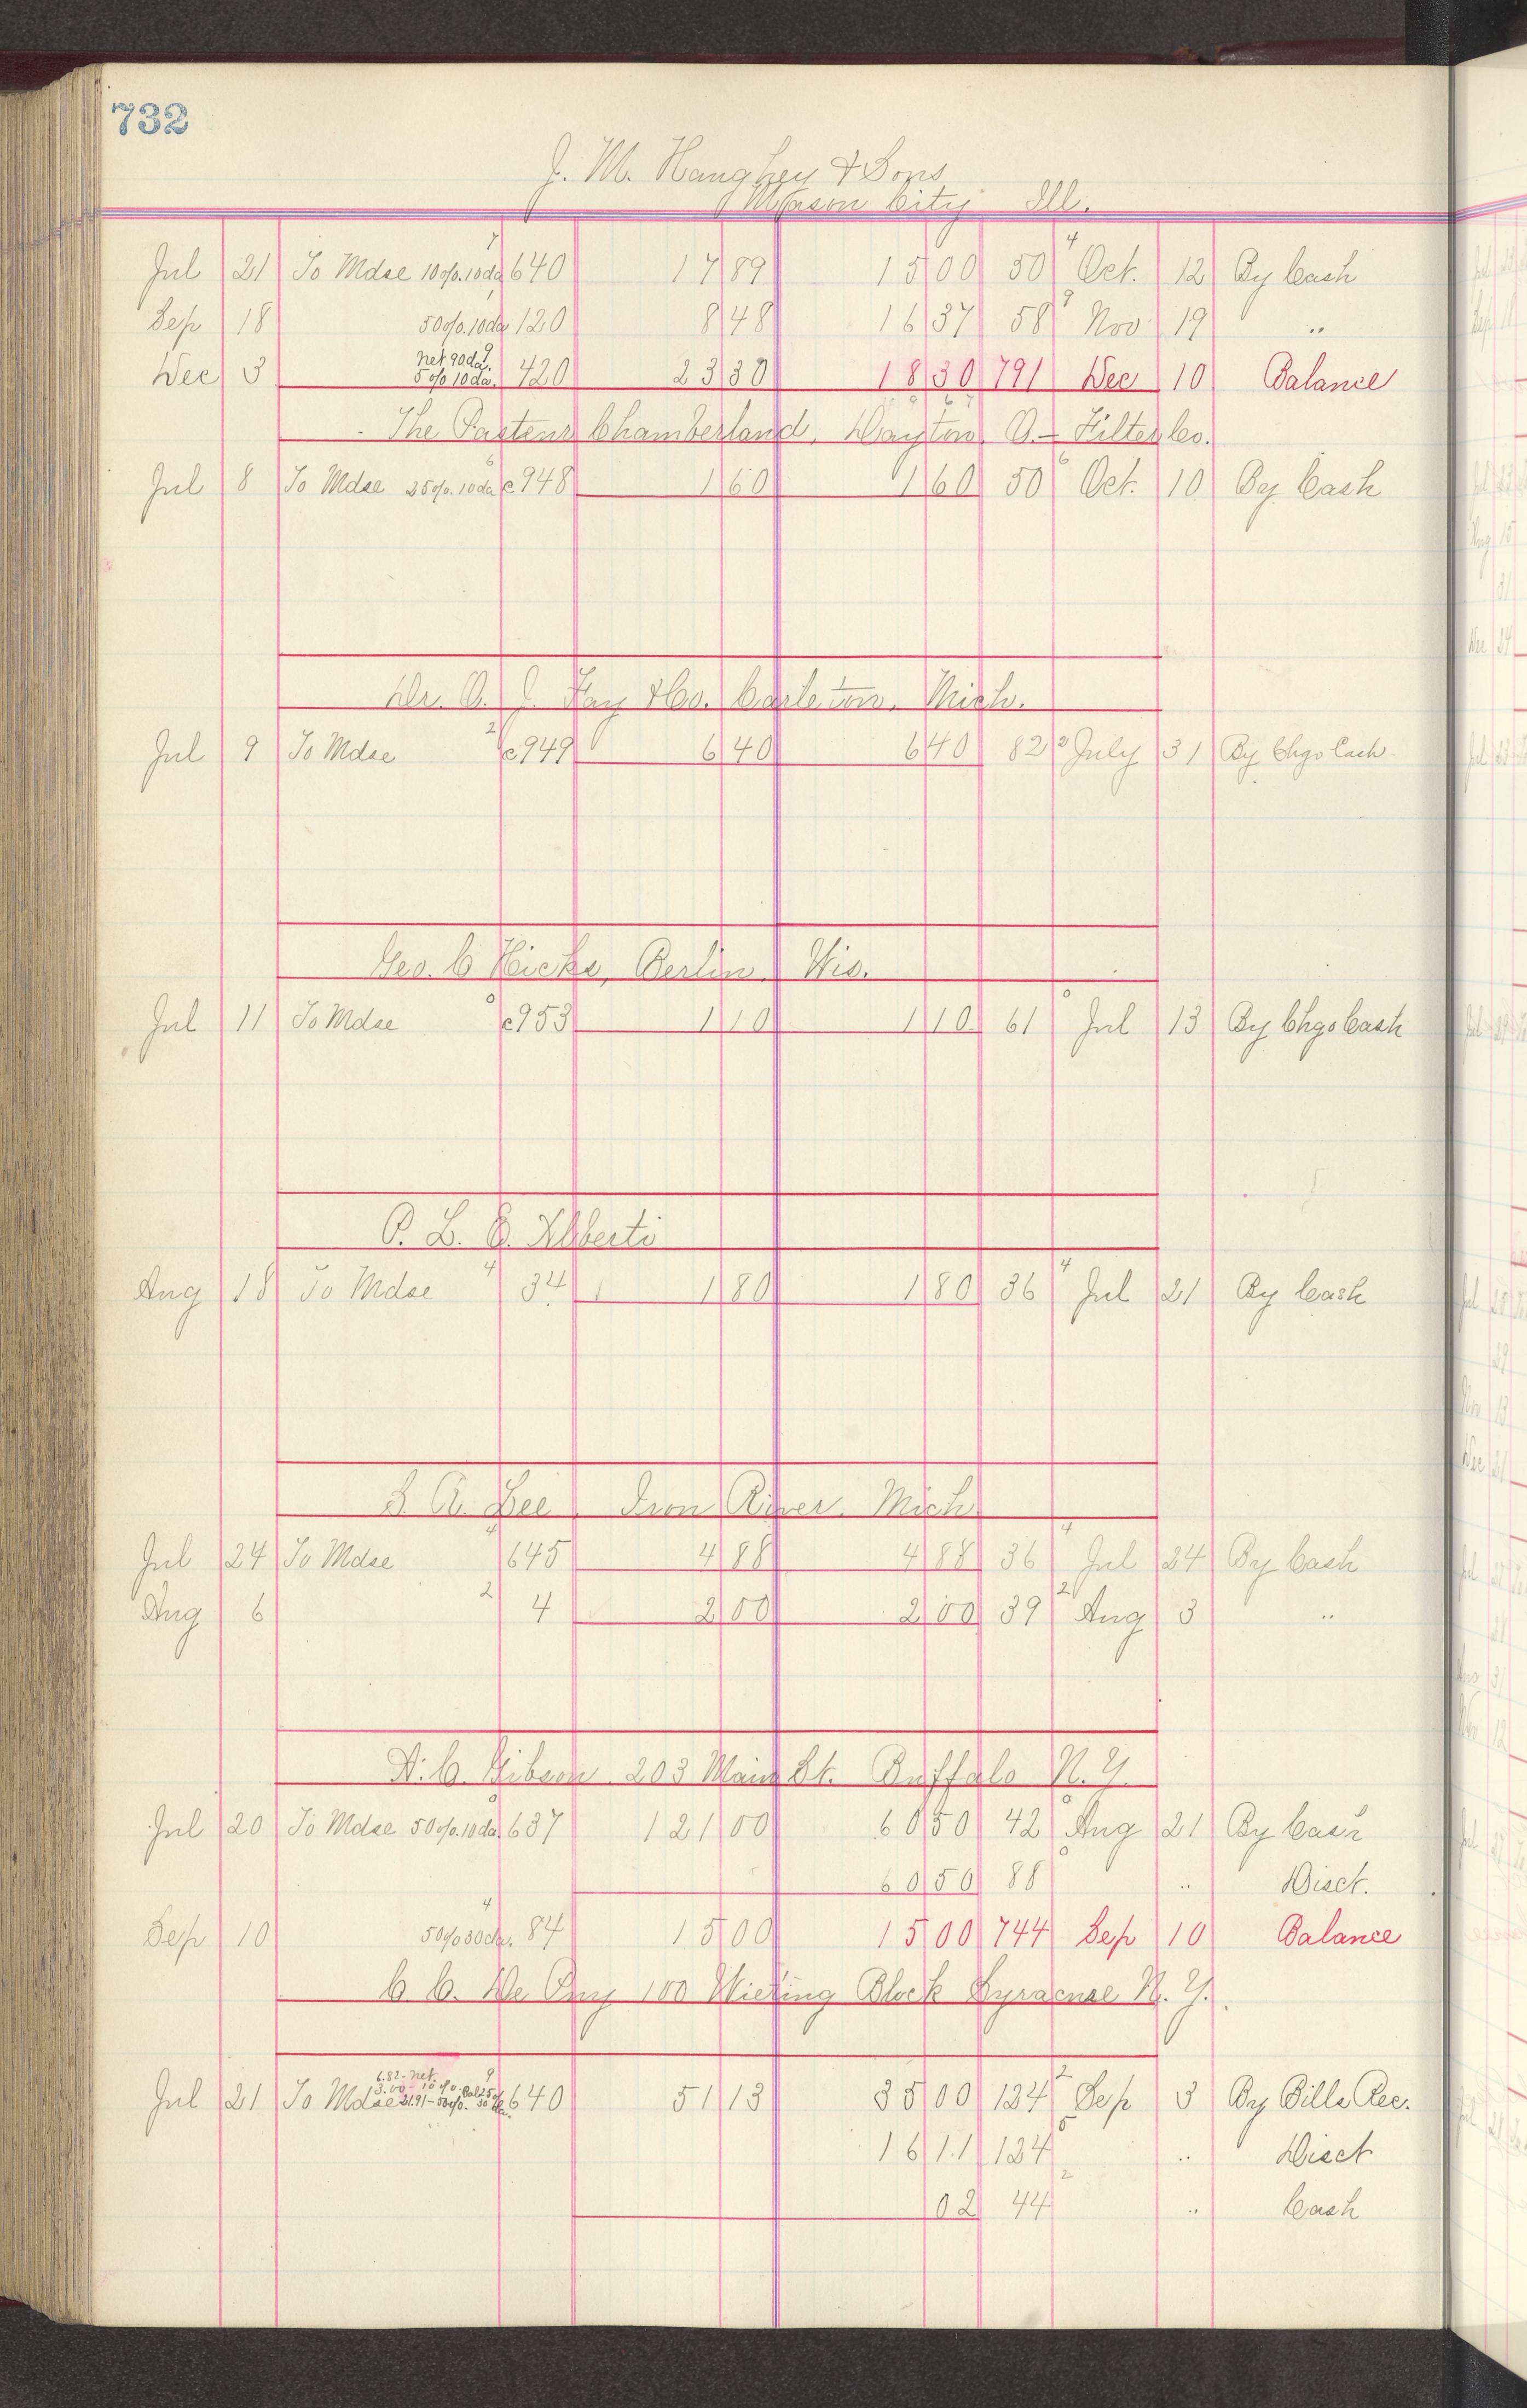 732
J. M. Haughey & Sons
Mason City Ill.
Jul 21 To Mdse 10%.10da 7 640 17 89 15 00 50 4 Oct. 12 By Cash
Sep 18 50%.10da 1 120 8 48 16 37 58 9 Nov 19 "
Dec 3 net 90da. 5% 10da. 9 420 23 30 18 30 791 Dec 10 Balance
The Pasteur Chamberland, Dayton, O. - Filter Co.
Jul 8 To Mdse 25%.10da c948 1 60 1 60 50 6 Oct. 10 By Cash
Dr. A. J. Fay & Co. Carleton, Mich.
Jul 9 To Mdse 2 c949 6 40 6 40 82 2 July 31 By Chgo Cash
Geo. C Hicks, Berlin, Wis.
Jul 11 To Mdse 0 c953 1 10 1 10 61 0 Jul 13 By Chgo Cash
P. L. E. Alberti
Aug 18 To Mdse 4 34 1 80 1 80 36 4 Jul 21 By Cash
S. A. Lee, Iron River. Mich
Jul 24 To Mdse 4 645 4 88 4 88 36 4 Jul 24 By Cash
Aug 6 2 4 2 00 2 00 39 2 Aug 3 "
Gibson 203 Main St. Buffalo N. Y.
Jul 20 To Mdse 50%.10da 0 637 121 00 60 50 42 0 Aug 21 By Cash
60 50 88 0 " Disct.
Sep 10 50%30da. 4 84 15 00 15 00 744 Sep 10 Balance
C. C. De Puy 100 Wieting Block Syracuse N. Y.
6.82 - net.
3.00 - 10%.
Jul 21 To Mdse 31.91 - 50%. 30 da. 9 640 51 13 35 00 134 2 Sep 3 By Bills Rec.
16 11 134 5 " Disct
02 44 2 " Cash